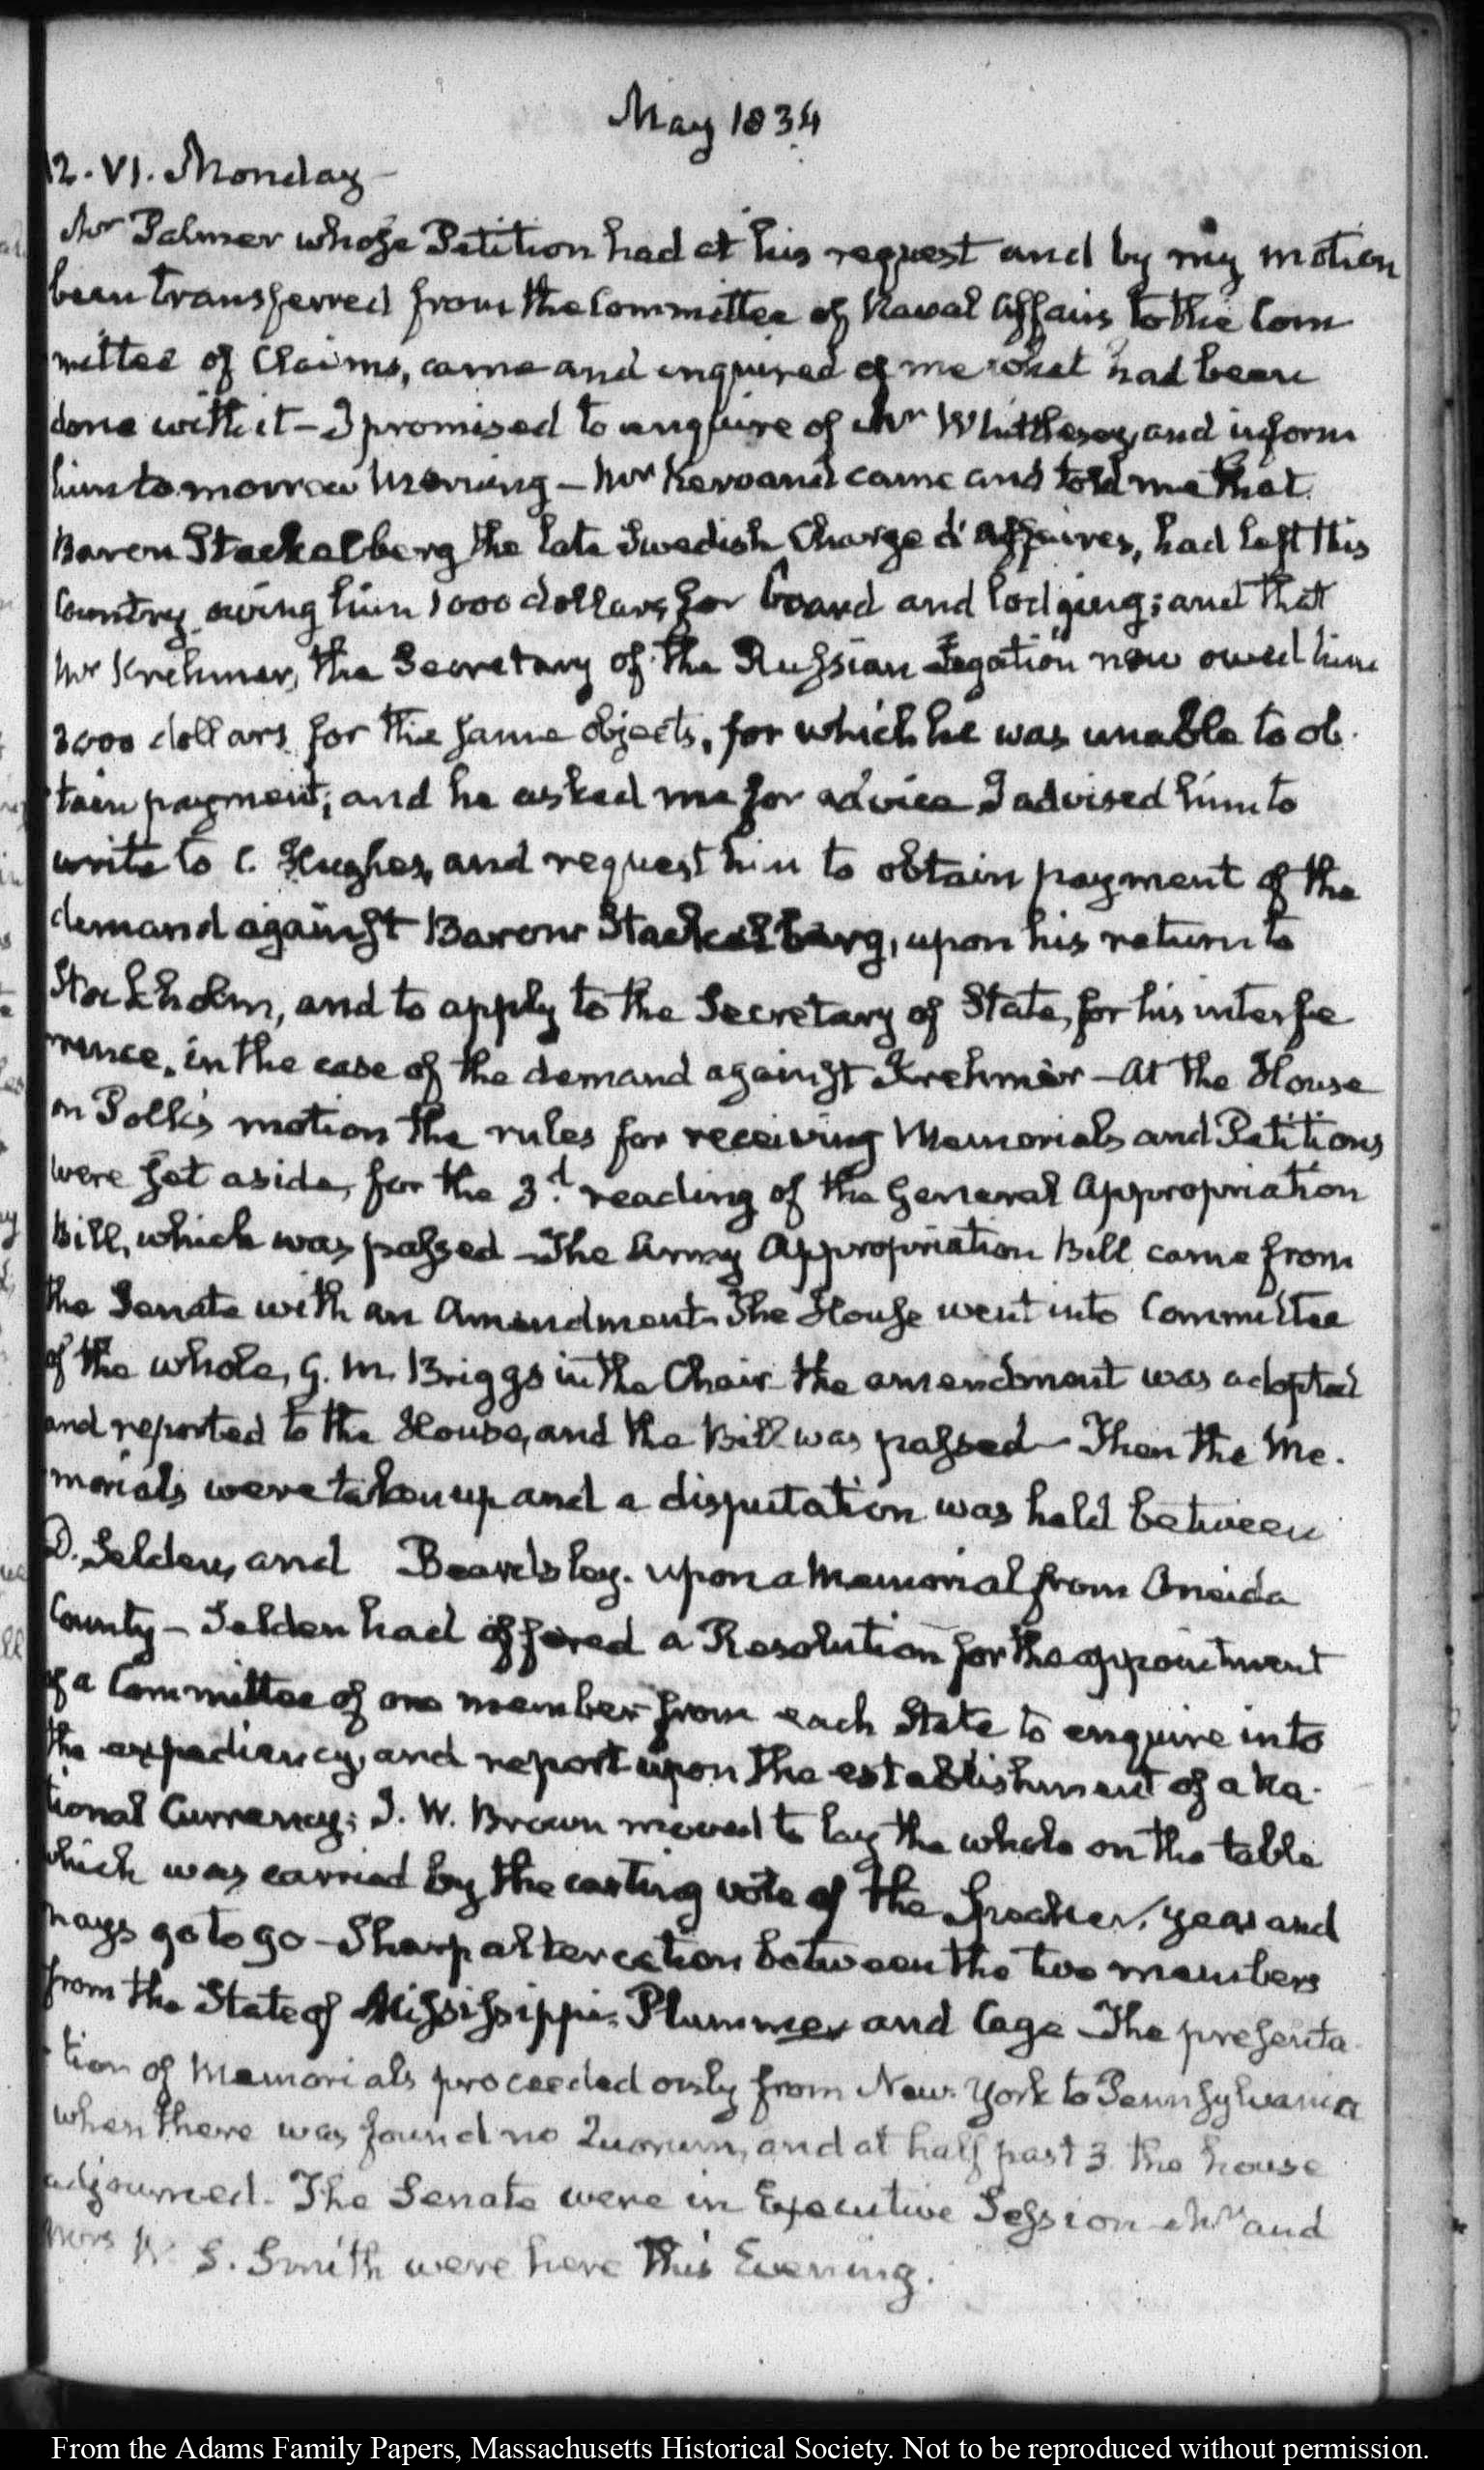 May 1834
12. VI. Monday
Mr Palmer whose Petition had at his request and by my motion
been transferred from the Committee of Naval Affairs to the Com
mittee of Claims, came and enquired of me what had been
done with it – I promised to enquire of Mr Whittlesey, and inform
him tomorrow Morning – Mr Kervand came and told me that
Baron Stackelberg the late Swedish Charge d'Affaires, had left this
Country owing him 1000 dollars for board and lodging; and that
Mr Krehmer, the Secretary of the Russian Legation now owed him
3000 dollars for the same objects, for which he was unable to ob
tain payment; and he asked me for advice I advised him to
write to C. Hughes, and request him to obtain payment of the
demand against Baron Stackelberg, upon his return to
Stockholm, and to apply to the Secretary of State, for his interfe
rence, in the case of the demand against Krehmer – At the House
on Polk's motion the rules for receiving Memorials and Petitions
were set aside, for the 3d reading of the General Appropriation
Bill, which was passed – The Army Appropriation Bill came from
the Senate with an Amendment. The House went into Committee
of the whole, G. M. Briggs in the Chair the amendment was adopted
and reported to the House, and the Bill was passed – Then the Me.
morials were taken up and a disputation was held between
D. Selden, and Beardsley. upon a Memorial from Oneida
County – Selden had offered a Resolution for the appointment
of a Committee of one member from each State to enquire into
the expediency, and report upon the establishment of a Na.
tional Currency; J. W. Brown moved to lay the whole on the table
which was carried by the casting vote of the Speaker, yeas and
nays 90 to 90 – Sharp altercation between the two members
from the State of Mississippi. Plummer and Cage – The presenta
tion of Memorials proceeded only from New York to Pennsylvania
when there was found no Quorum, and at half past 3 the house
adjourned. The Senate were in Executive Session – Mr and
Mrs W. S. Smith were here this Evening.
From the Adams Family Papers, Massachusetts Historical Society. Not to be reproduced without permission.